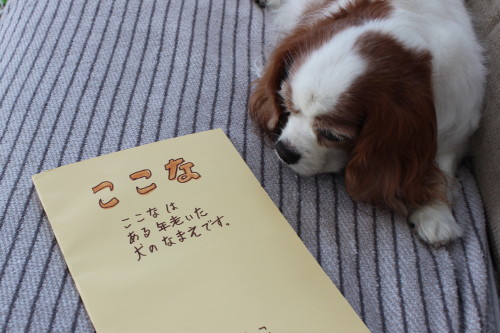 ここな
ここなは
ある年老いた
犬のなまえです。